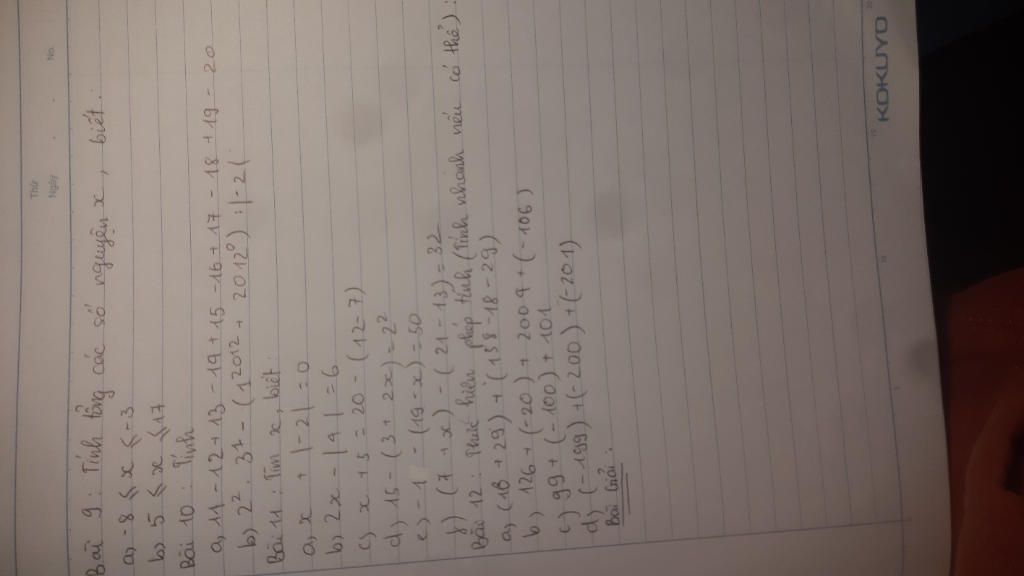 Thứ
Ngày
No.
Bài 9 : Tính tổng các số nguyên x , biết :
a, -8 ⩽ x ⩽ -3
b, 5 ⩽ x ⩽ 17
Bài 10 : Tính
a, 11 - 12 + 13 - 14 + 15 - 16 + 17 - 18 + 19 - 20
b, 2² . 3² - (1²⁰¹² + 2012⁰) : |-2|.
Bài 11 : Tìm x, biết :
a, x + |-2| = 0
b, 2x - |4| = 6
c, x + 5 = 20 - (12 - 7)
d, 15 - (3 + 2x) = 2²
e, -1 - (19 - x) = 50
g) (7 + x) - (21 - 13) = 32
Bài 12 : Thực hiện phép tính (Tính nhanh nếu có thể) :
a, (18 + 29) + (158 - 18 - 29)
b, 126 + (-20) + 2004 + (-106)
c, 99 + (-100) + 101
d, (-199) + (-200) + (-201)
Bài Giải :
KOKUYO